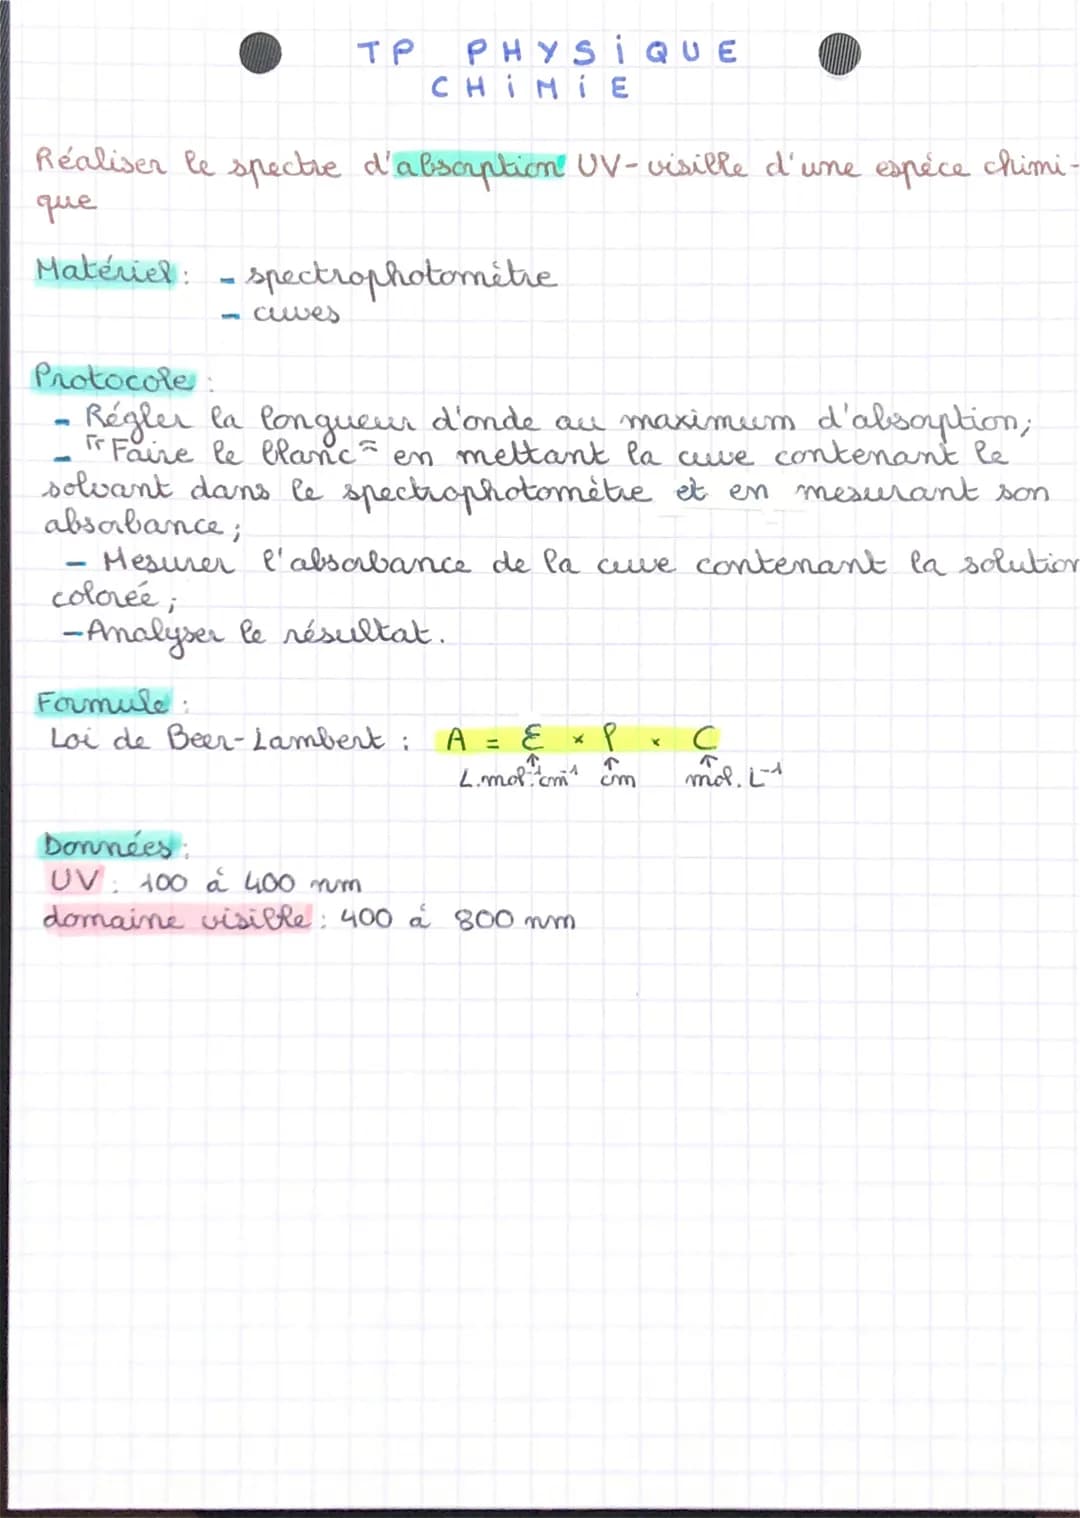 TP PHYSiQUE
CHiMiE
Réaliser le spectre d'absorption UV-visible d'une espéce chimi-
que
Matériel : - spectrophotomètre
- cuves
Protocole :
- Régler la longueur d'onde au maximum d'absorption;
- "Faire le blanc" en mettant la cuve contenant le
solvant dans le spectrophotomètre et en mesurant son
absorbance ;
- Mesurer l'absorbance de la cuve contenant la solution
colorée ;
- Analyser le résultat.
Formule :
Loi de Beer-Lambert : A = Ɛ × l × C
L.mol⁻¹cm⁻¹ cm mol.L⁻¹
Données :
UV : 100 á 400 nm
domaine visible : 400 á 800 nm